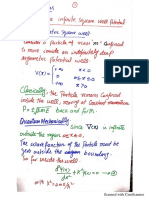 The infinite square well Potential
Asymmetric square well
Consider a Particle of mass "m" confined
to move inside an infinitely deep
asymmetric potential well
V(x) = { +∞ x<0
0 0≤x≤a
+∞ x>a
Classically: The Particle remains Confined
inside the well, moving at Constant momentum
P = ±√2mE back and forth.
Quantum Mechanically
Since V(x) is infinite
outside the region
The wave function of the Particle must be
zero outside the
boundary.
So for inside the well
d²ψ(x)/dx² + k²ψ(x) = 0
Scanned with CamScanner